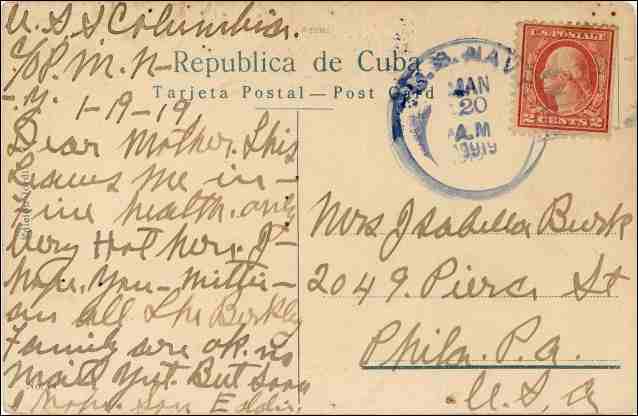 U.S.S Columbia.
C/o P.M. N-
-Y. 1-19-19
Dear Mother. This
Leaves Me in-
Fine health. only
Very Hot here. I-
hope. You - Mitte-
an all The Berkly
Family are ok. no
Mail Yyt. But soon
I hope. son Eddie.
Republica de Cuba
Tarjeta Postal — Post Card
U.S. NAV
JAN
20
A.M
1919
U.S. POSTAGE
2 CENTS 2
Mrs Isabella Burk
2049. Pierce St
Phila. P.a.
U.S.a